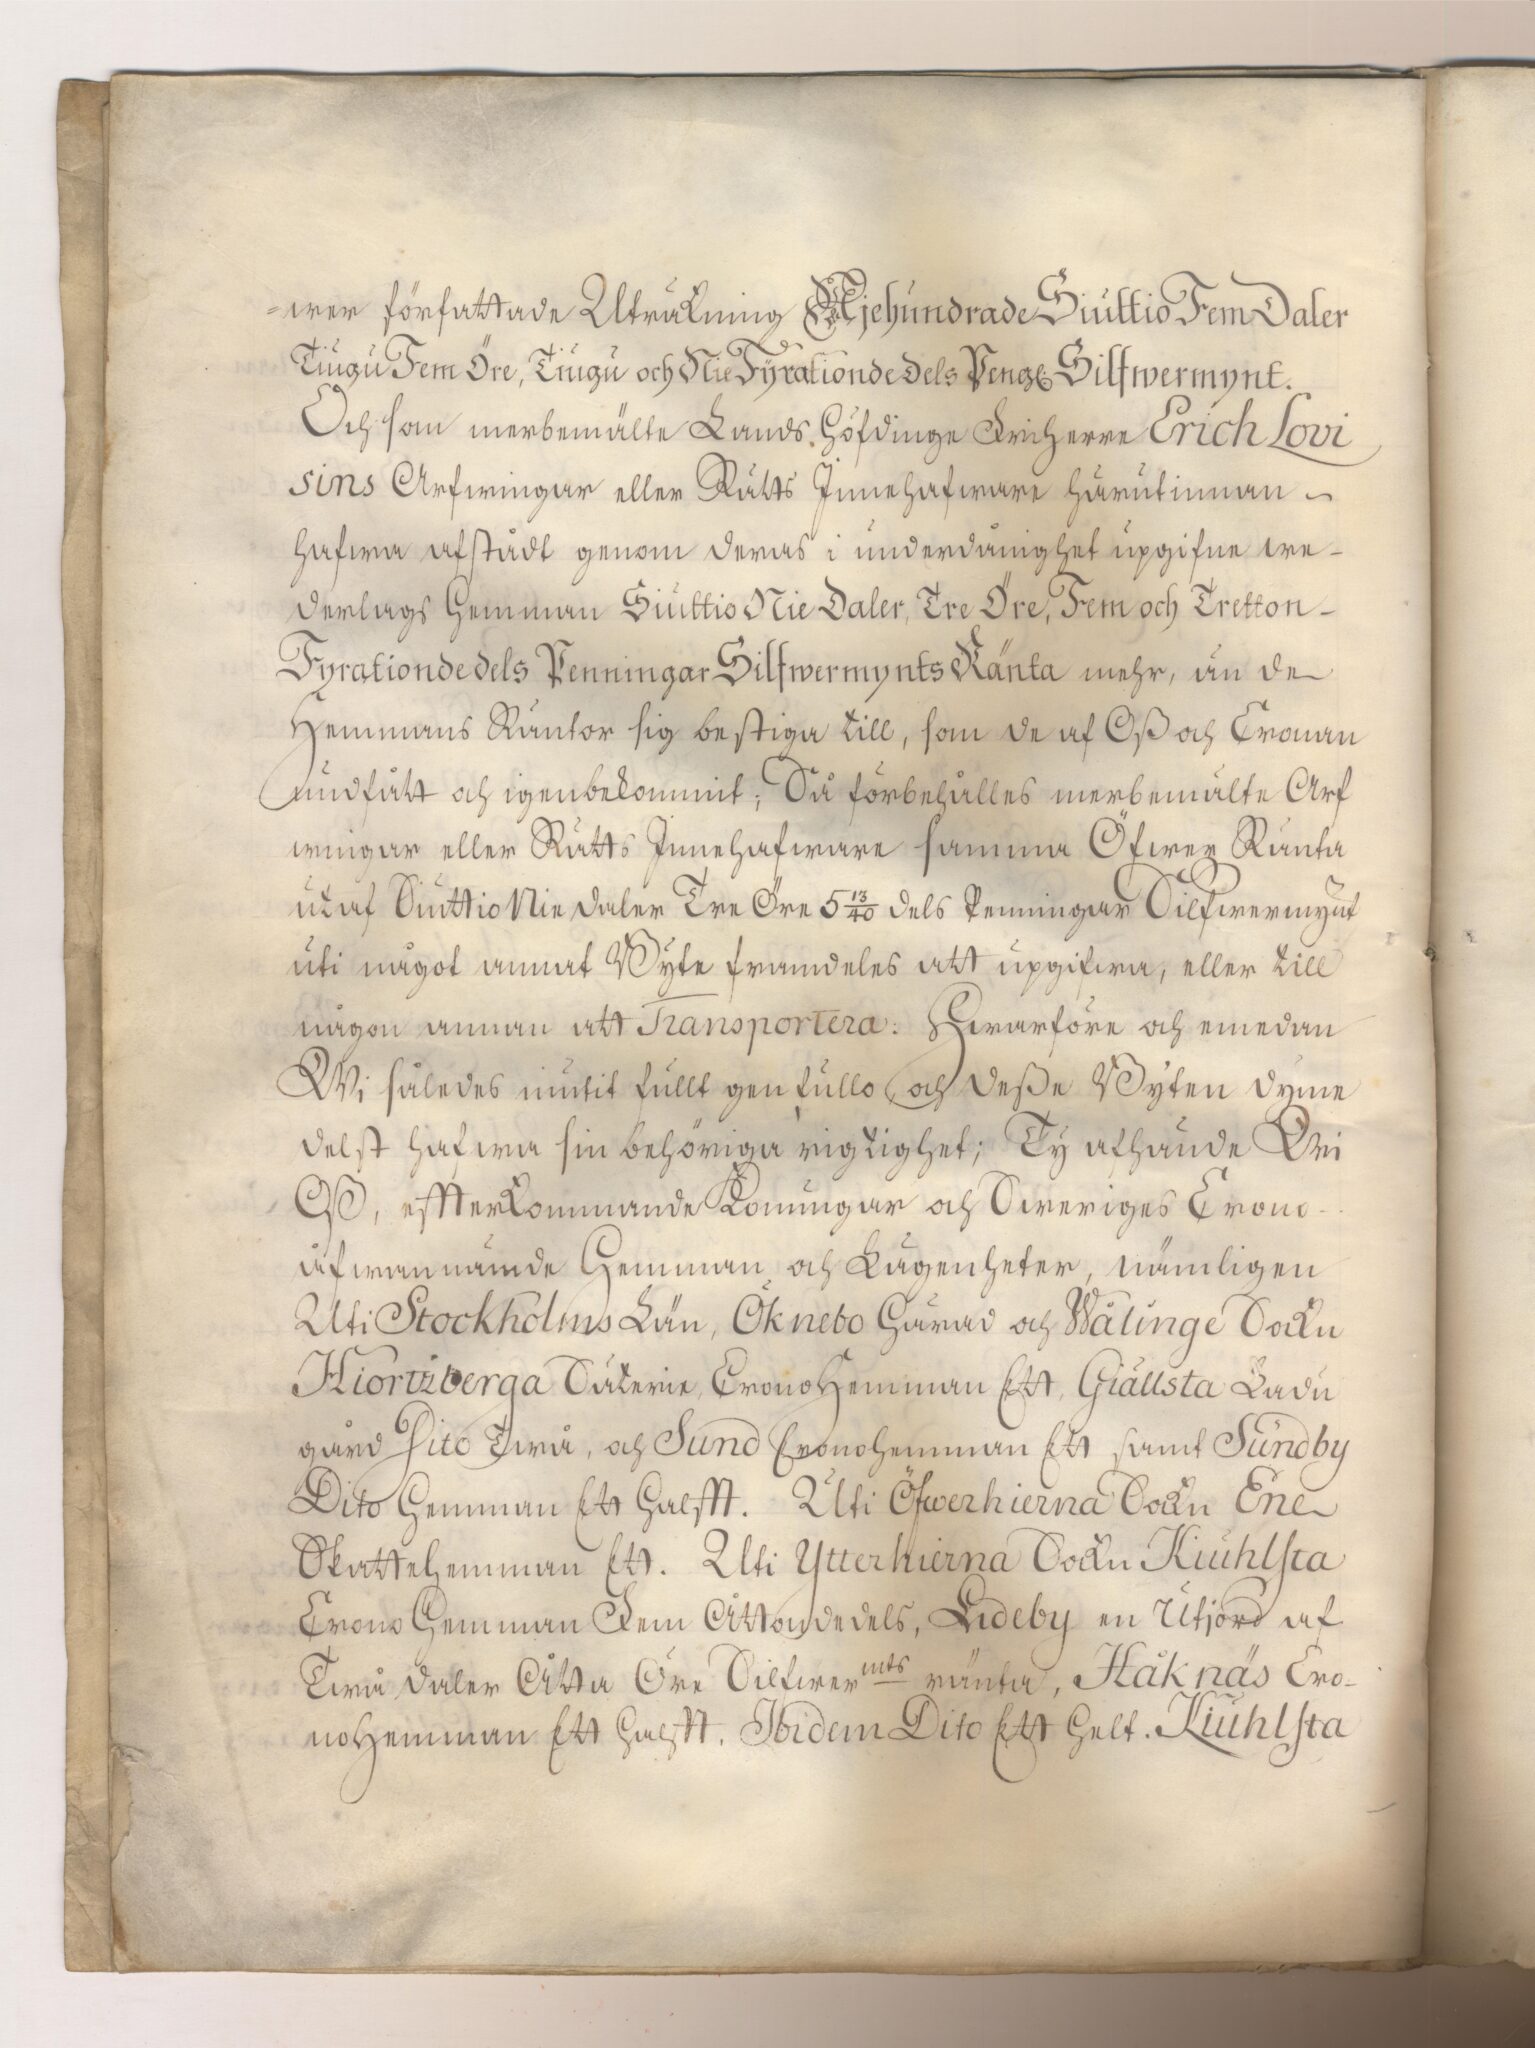 =wer författade Uträkning Niehundrade Siuttio Fem Daler
Tiugu Fem Öre, Tiugu och Nie Fyrationdedels Peng: Silfwermynt.
Och som merbemälte Lands Höfdinge Friherre Erich Lovi
sins Arfwingar eller Rätts Innehafware härutinnan
hafwa afstådt genom deras i underdånighet upgifne we-
derlags Hemman Siuttio Nie Daler, Tre Öre, Fem och Tretton-
Fyrationdedels Penningar Silfwermynts Ränta mehr, än de
Hemmans Räntor sig bestiga till, som de af Oß och Cronan
undfått och igenbekommit; Så förbehålles merbemälte Arf
wingar eller Rätts Innehafware samma Öfwer Ränta
utaf Siuttio Nie daler Tre Öre 5 13/40 dels Penningar Silfwermynt
uti något annat Byte framdeles att upgifwa, eller till
någon annan att Transportera: Hwarföre och emedan
Wi således nutit fullt gen fullo, och deße Byten dyme
delst hafwa sin behöriga rigtighet; Ty afhände Wi
Oß, effterkommande Konungar och Sweriges Crono
åfwannämde Hemman och Lägenheter, nämligen
Uti Stockholms Län, Öknebo Härad och Wålinge Sockn
Hiortzberga Säterie, CronoHemman Ett, Giällsta Ladu
gård Dito Twå, och Sund Cronohemman Ett samt Sundby
Dito Hemman Ett Halfft. Uti Öfwerhierna Sockn Ene
Skattehemman Ett. Uti Ytterhierna Sockn Kiuhlsta
Crono Hemman Fem Åttondedels, Lideby en Utjord af
Twå daler Åtta Öre Silfwermts ränta, Håknäs Cro-
noHemman Ett Halfft. Ibidem Dito Ett Helt. Kiuhlsta